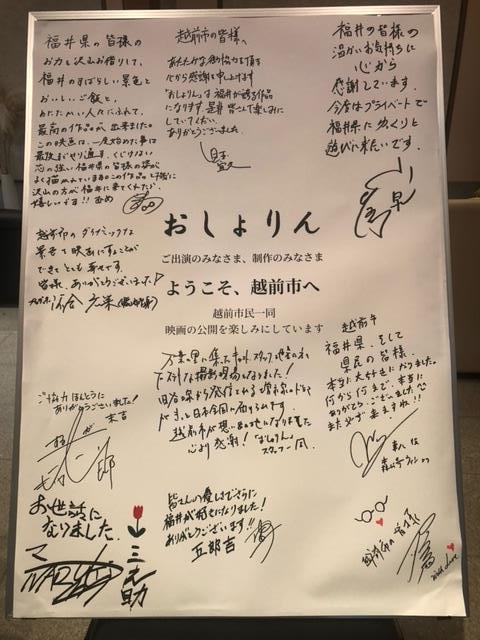 福井県の皆様の
お力を沢山お借りして、
福井のすばらしい景色と
おいしいご飯と、
あたたかい人々にふれて、
最高の作品が出来ました
この映画は、一度始めた事は
最後までやり通す、くじけない
芯の強い福井県の皆様の姿が
よく描かれています
沢山の方が福井に来てくれたら
嬉しいです!!
越前市の皆様へ
あたたかな
心から感謝を申し上げます
「おしょりん」は福井が誇る作品
になります。是非皆さんで楽しみに
していてください。
ありがとうございました。
福井の皆様の
温かいお気持ちに
心から
感謝しています。
今度はプライベートで
福井県に ゆっくりと
遊びに来たいです。
おしょりん
ご出演のみなさま、制作のみなさま
ようこそ、越前市へ
越前市民一同
映画の公開を楽しみにしています
越前市のダイナミックな
景色で映画にすることが
できてとても幸せです。
皆様、ありがとうございました!
万葉の里に集ったキャスト、スタッフ
撮影現場になりました!
越前市が想い出の地になりました
心より感謝!「おしょりん」
スタッフ一同
越前市
福井県、そして
県民の皆様、
本当に大好きになりました。
何から何まで、本当に
ありがとうございました
また必ず来ますね!!
ご協力ほんとうに
ありがとうございました!
末吉
お世話に
なりました
三之助
皆さんの優しさでさらに
福井が好きになりました!
ありがとうございます!!
五郎吉
越前市の皆様
with love